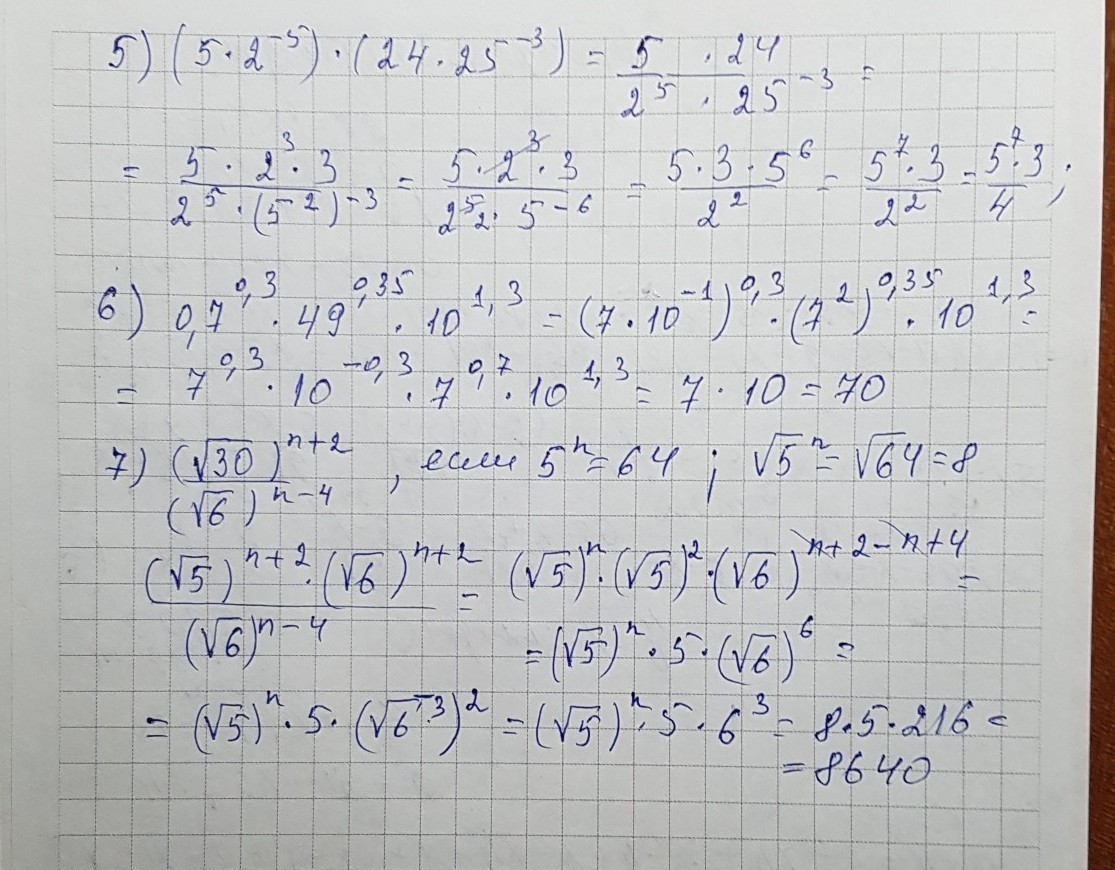 5) (5·2⁻⁵)·(24·25⁻³) = (5·24)/(2⁵·25⁻³) =
= (5·2³·3)/(2⁵·(5⁻²)⁻³) = (5·2³·3)/(2⁵₂·5⁻⁶) = (5·3·5⁶)/2² = (5⁷·3)/2² = (5⁷·3)/4 ;
6) 0,7^0,3 · 49^0,35 · 10^1,3 = (7·10⁻¹)^0,3 · (7²)^0,35 · 10^1,3 =
= 7^0,3 · 10^-0,3 · 7^0,7 · 10^1,3 = 7·10 = 70
7) (√30)^(n+2)/(√6)^(n-4) , если 5ⁿ=64 ; √5ⁿ=√64=8
((√5)^(n+2)·(√6)^(n+2))/(√6)^(n-4) = (√5)ⁿ·(√5)²·(√6)^(n+2-n+4) =
= (√5)ⁿ·5·(√6)⁶ =
= (√5)ⁿ·5·(√6³)² = (√5)ⁿ·5·6³ = 8·5·216 =
= 8640